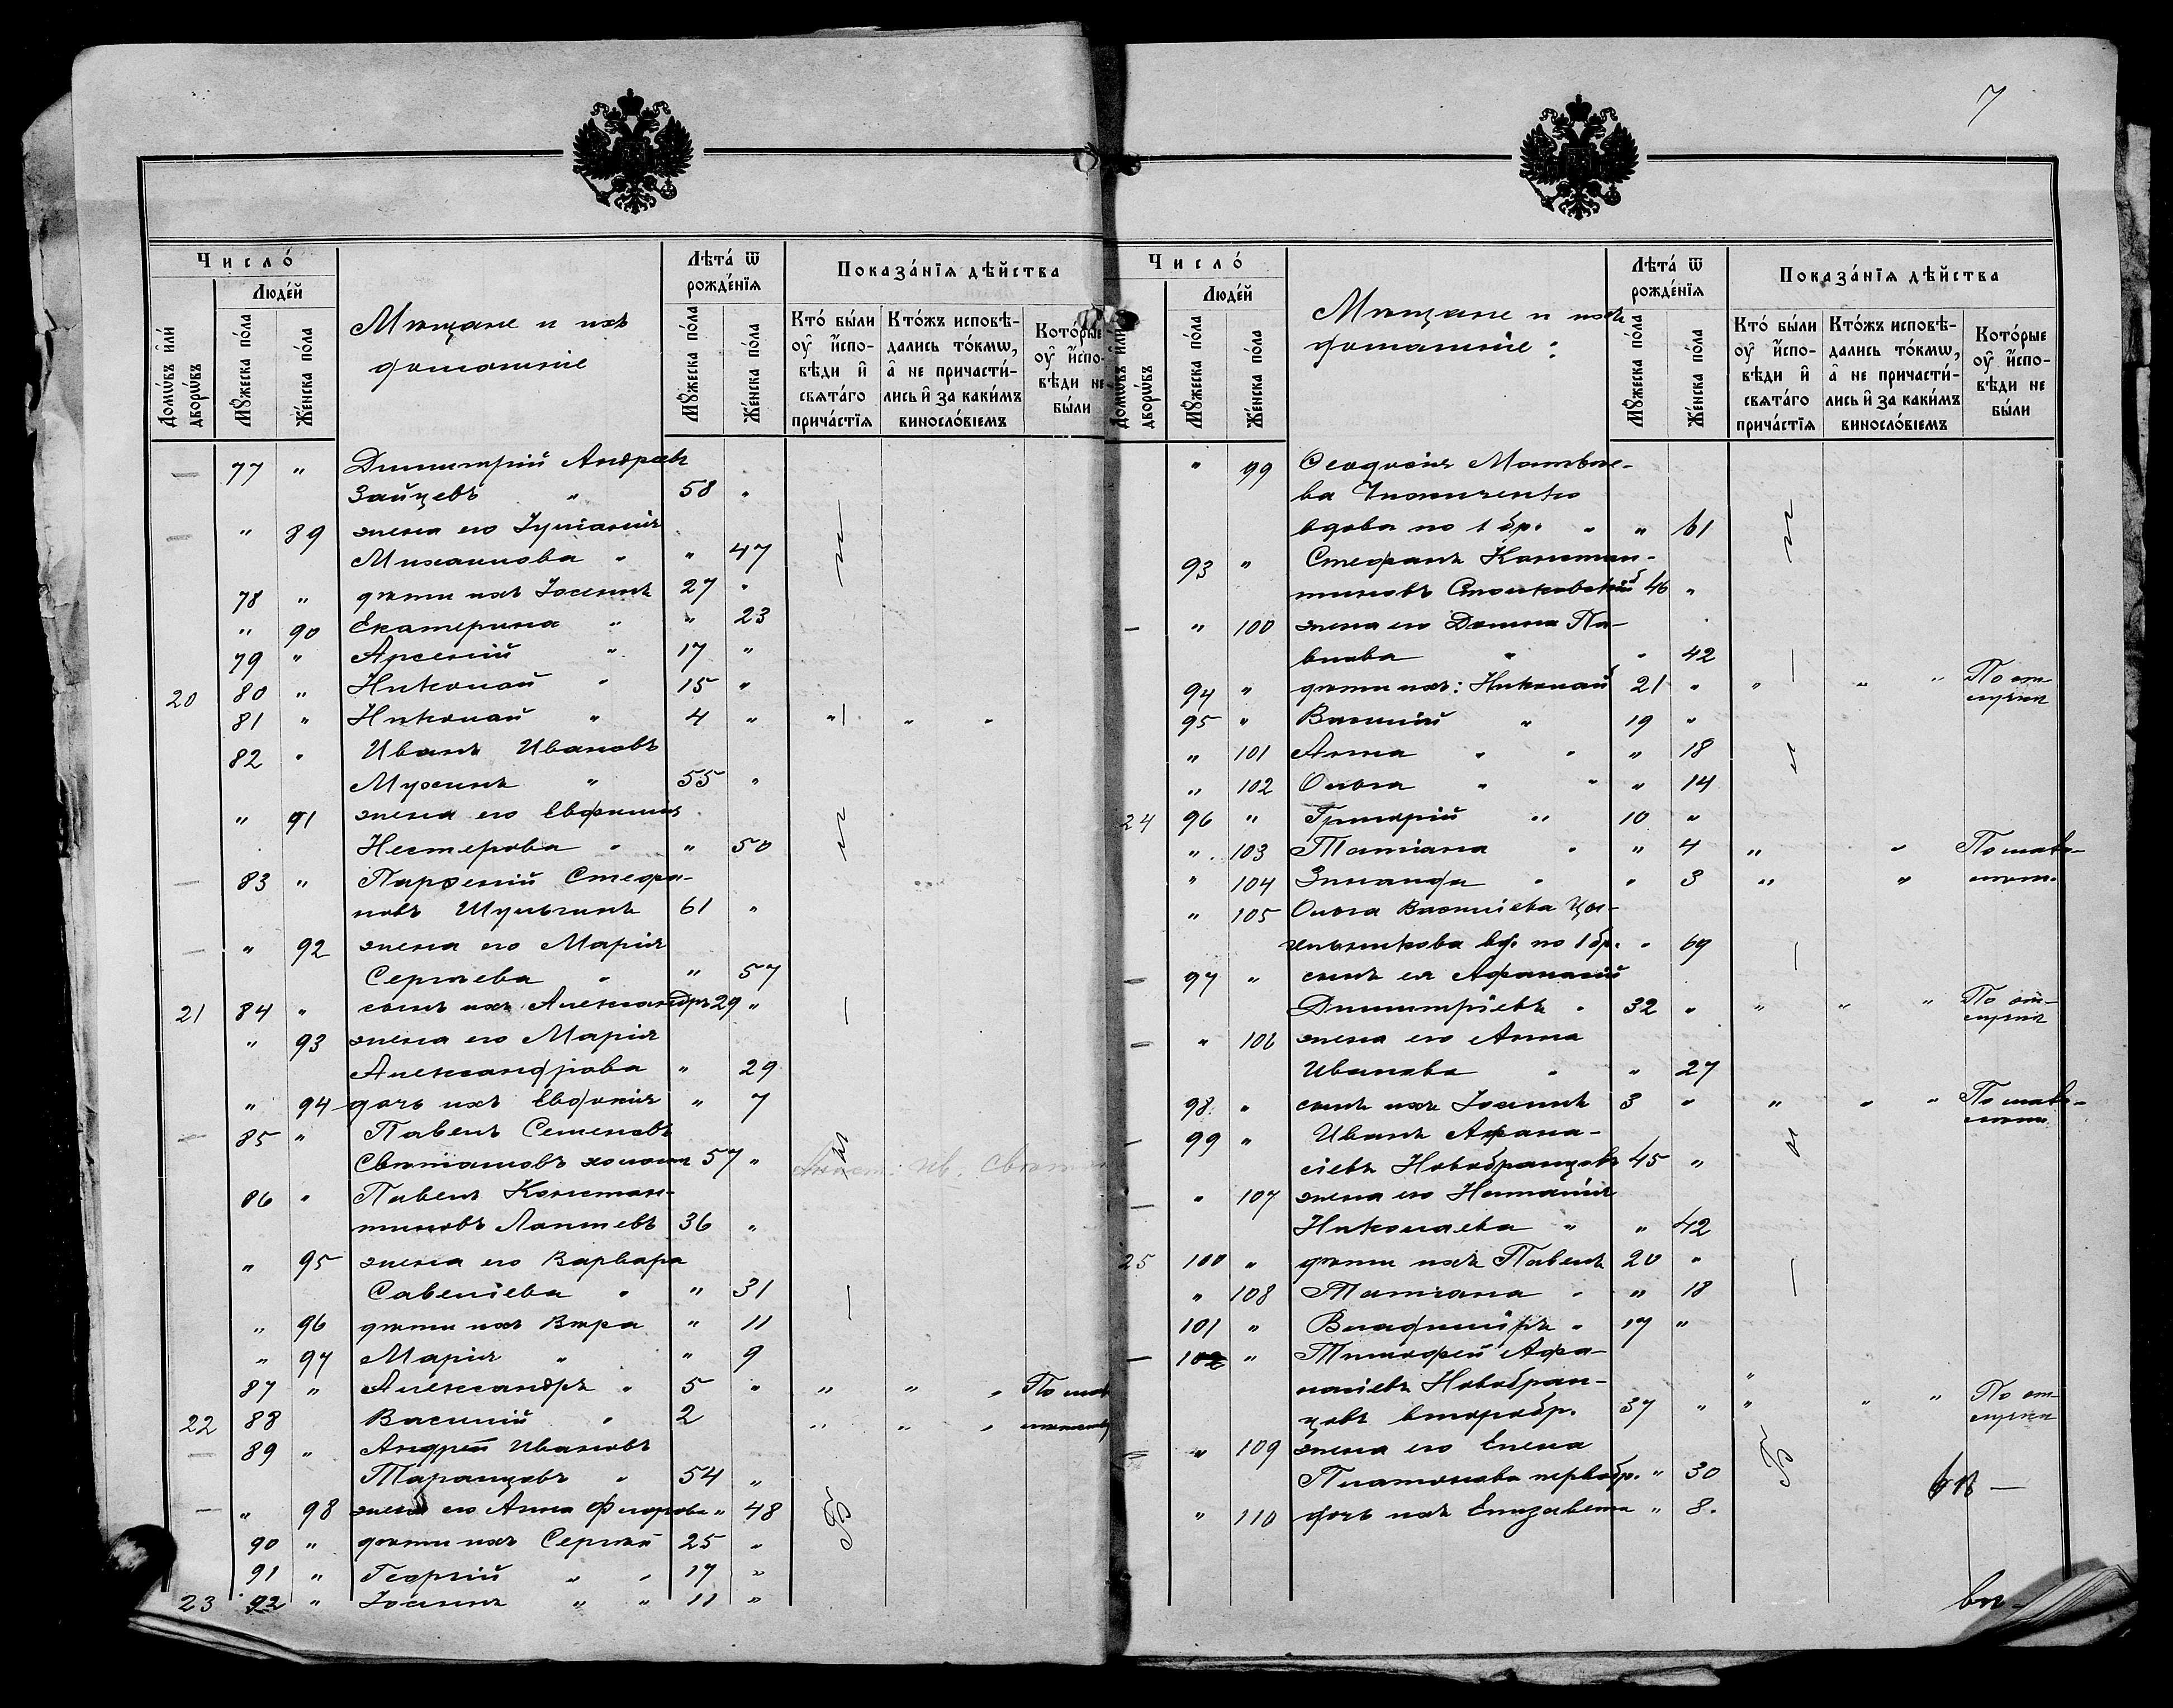 7
Число́
Люде́й
Домѡ́въ и҆лѝ дворѡ́въ
Мꙋ́жеска по́ла
Же́нска по́ла
Мѣщане и ихъ
домашніе
Лѣта̀ ѿ рожде́нїѧ
Мꙋ́жеска по́ла
Же́нска по́ла
Показа́нїѧ дѣ́йства
Кто̀ бы́ли оу҆ и҆́сповѣди и҆ свѧта́го прича́стїѧ
Кто́жъ исповѣ́дались то́кмѡ, а҆ не причасти́лись и҆ за каки́мъ винослові́емъ
Кото́рые оу҆ и҆́сповѣди не бы́ли
77 " Димитрій Андреевъ
Зайцевъ " 58 "
" 89 жена его Іуліанія
Михаилова " " 47
78 " дѣти ихъ Іосифъ 27 "
" 90 Екатерина " " 23
79 " Арсеній " 17 "
20 80 " Николай " 15 "
81 " Николай " 4 " " " "
82 " Иванъ Ивановъ
Мухинъ " 55 "
" 91 жена его Евфимія
Нестерова " " 50
83 " Парѳеній Стефа-
новъ Шульгинъ 61 "
" 92 жена его Марія
Сергѣева " " 57
21 84 " сынъ ихъ Александръ 29 "
" 93 жена его Марія
Александрова " 29
" 94 дочь ихъ Евдокія " 7
85 " Павелъ Семеновъ
Свѣташовъ холостъ 57 "
86 " Павелъ Констан-
тиновъ Лаптевъ 36 "
" 95 жена его Варвара
Савеліева " " 31
" 96 дѣти ихъ Вѣра " 11
" 97 Марія " " 9
87 " Александръ " 5 " " " " По мал
22 88 Василій " 2 " " "
89 " Андрей Ивановъ
Таранцовъ " 54 "
" 98 жена его Анна Федорова " 48
90 " дѣти ихъ Сергѣй 25 "
91 " Георгій " " 17 "
23 92 " Іоаннъ " " 11 "
Число́
Люде́й
Домѡ́въ и҆лѝ дворѡ́въ
Мꙋ́жеска по́ла
Же́нска по́ла
Мѣщане и ихъ
домашніе:
Лѣта̀ ѿ рожде́нїѧ
Мꙋ́жеска по́ла
Же́нска по́ла
Показа́нїѧ дѣ́йства
Кто̀ бы́ли оу҆ и҆́сповѣди и҆ свѧта́го прича́стїѧ
Кто́жъ исповѣ́дались то́кмѡ, а҆ не причасти́лись и҆ за каки́мъ винослові́емъ
Кото́рые оу҆ и҆́сповѣди не бы́ли
" 99 Ѳеодосія Матвѣе-
ва
вдова по 1 бр. " " 61
93 " Стефанъ Констан-
тиновъ 46 "
" 100 жена его Домна Па-
влова " " 42
94 " дѣти ихъ: Николай 21 " " " " По от-
лучкѣ
95 " Василій " 19 "
" 101 Анна " " " 18
" 102 Ольга " " " 14
24 96 " Григорій " 10 "
" 103 Татіана " " 4 " " По мало-
" 104 Зинаида " " 3 " " лѣтст.
" 105 Ольга Василіева
вд. по 1 бр. " 69
97 " сынъ ея Афанасій
Димитріевъ " 32 " " " " По от-
лучкѣ
" 106 жена его Анна
Иванова " " 27
98 " сынъ ихъ Іоаннъ 3 " " " " По мало-
99 " Иванъ Афана-
сіевъ Новобранцовъ 45 "
" 107 жена его Наталія
Николаева " " 42
25 100 " дѣти ихъ Павелъ 20 "
" 108 Татіана " " 18
101 " Владиміръ " 17 "
102 " Тимофей Афа-
насіевъ Новобран-
цовъ второбр. 37 " " " " По от-
лучкѣ
" 109 жена его Елена
Платонова первобр. " 30
" 110 дочь ихъ Елизавета " 8.